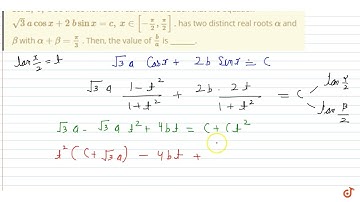 √3 a cos x + 2 b sin x = c, x ∈ [-π/2, π/2], has two distinct real roots α and
β with α + β = π/3. Then, the value of b/a is ______.
tan x/2 = t
√3 a Cos x + 2b Sin x = C
√3 a (1 - t²)/(1 + t²) + 2b · 2t/(1 + t²) = C
tan α/2
tan β/2
√3 a - √3 a t² + 4bt = C + Ct²
t² (C + √3 a) - 4bt +